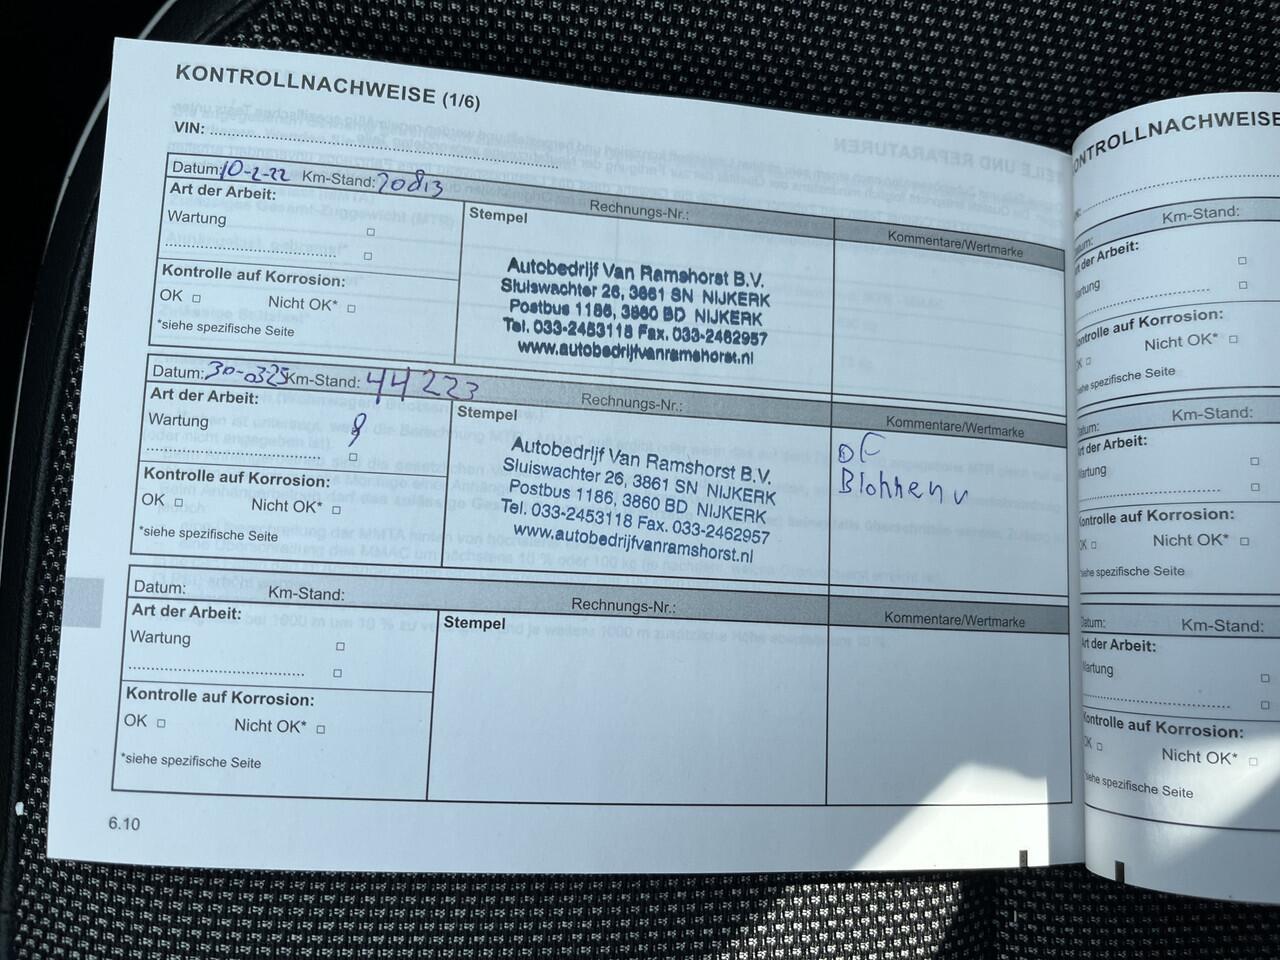 KONTROLLNACHWEISE (1/6)
VIN:
Datum: 10-2-22 Km-Stand: 20813
Rechnungs-Nr.:
Art der Arbeit:
Wartung
Kontrolle auf Korrosion:
OK Nicht OK*
*siehe spezifische Seite
Stempel
Autobedrijf Van Ramshorst B.V.
Sluiswachter 26, 3861 SN NIJKERK
Postbus 1186, 3860 BD NIJKERK
Tel. 033-2453118 Fax. 033-2462957
www.autobedrijfvanramshorst.nl
Kommentare/Wertmarke
Datum: 30-0325 Km-Stand: 44223
Rechnungs-Nr.:
Art der Arbeit:
Wartung
Kontrolle auf Korrosion:
OK Nicht OK*
*siehe spezifische Seite
Stempel
Autobedrijf Van Ramshorst B.V.
Sluiswachter 26, 3861 SN NIJKERK
Postbus 1186, 3860 BD NIJKERK
Tel. 033-2453118 Fax. 033-2462957
www.autobedrijfvanramshorst.nl
Kommentare/Wertmarke
Datum: Km-Stand:
Rechnungs-Nr.:
Art der Arbeit:
Wartung
Kontrolle auf Korrosion:
OK Nicht OK*
*siehe spezifische Seite
Stempel
Kommentare/Wertmarke
6.10
ONTROLLNACHWEISE
Km-Stand:
der Arbeit:
artung
ontrolle auf Korrosion:
Nicht OK*
siehe spezifische Seite
Km-Stand:
Art der Arbeit:
artung
Kontrolle auf Korrosion:
OK Nicht OK*
siehe spezifische Seite
Datum: Km-Stand:
Art der Arbeit:
Wartung
Kontrolle auf Korrosion:
OK Nicht OK*
siehe spezifische Seite